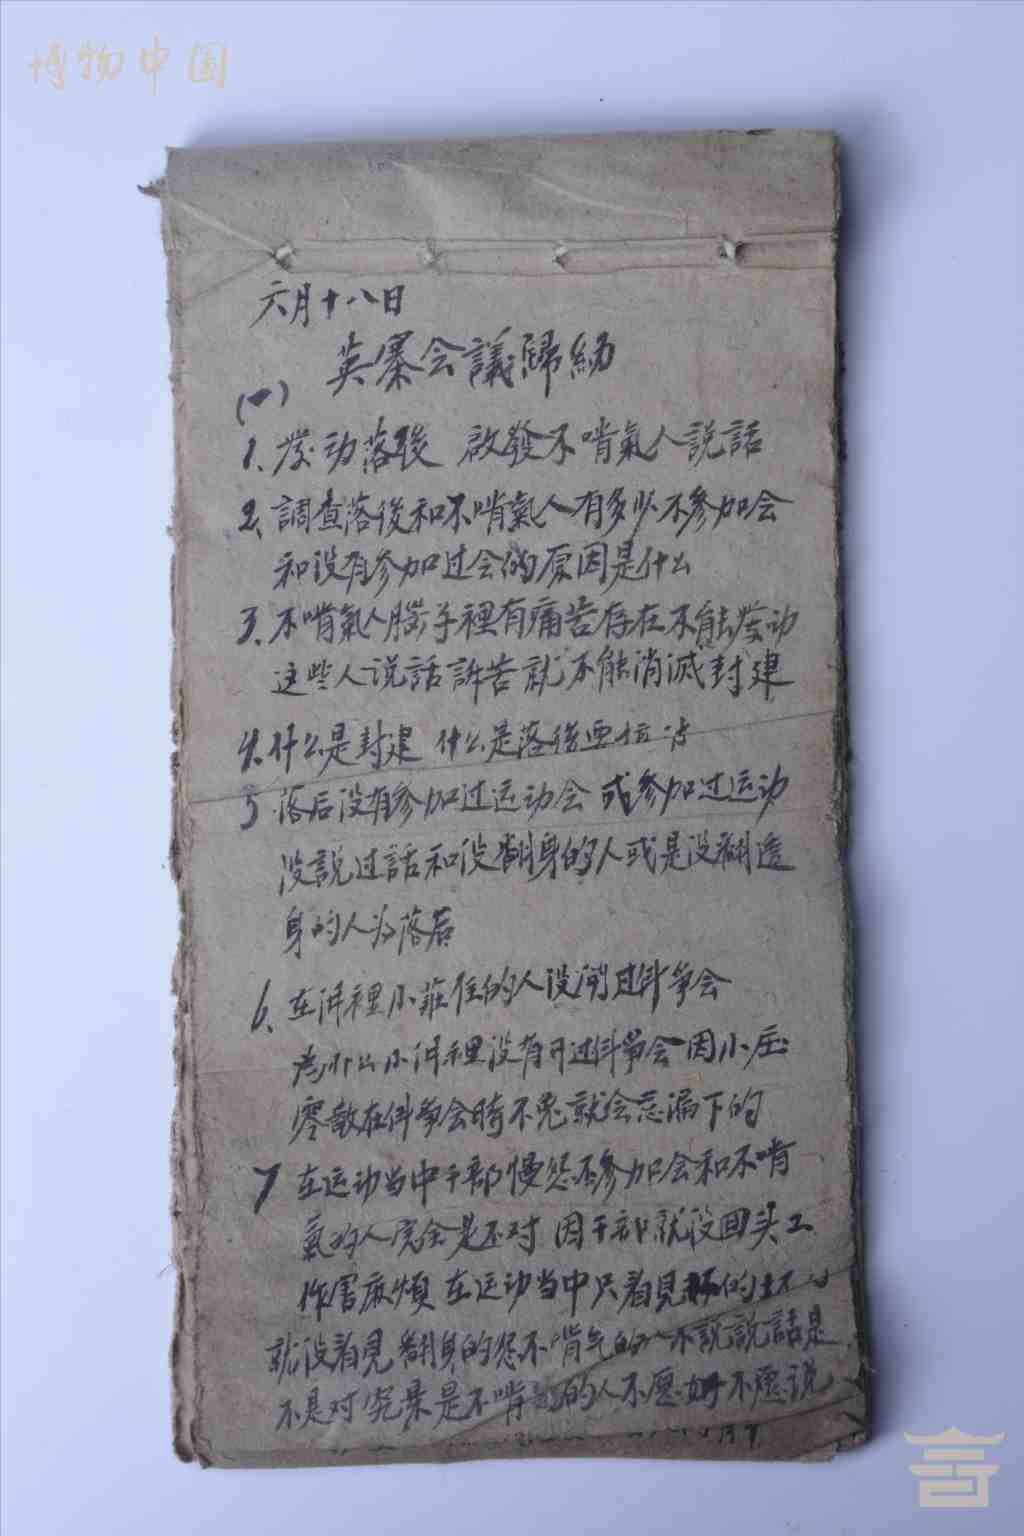 博物中国
六月十八日
英寨会議歸纳
(一)
1、发动落後 啟發不啃氣人說話
2、調查落後和不啃氣人有多少不參加会
和没有参加过会的原因是什么
3、不啃氣人腦子裡有痛苦存在不能发动
这些人说話訴苦就不能消灭封建
4.什么是封建 什么是落後
5 落后没有参加过运动会 或参加过运动
没說过話和没翻身的人或是没翻透
身的人为落后
6、在洋裡小莊住的人没開过斗争会
為什么小洋裡没有开过斗爭会 因小庄
零散在斗争会時不免就会忘漏下的
7 在运动当中干部慢怨不参加会和不啃
氣的人完全是不对 因干部就没回头工
作害麻煩 在运动当中只看見坏的
就没看見翻身的怨不啃气的人不説說話是
不是对 究景是不啃的人不愿 不愿说